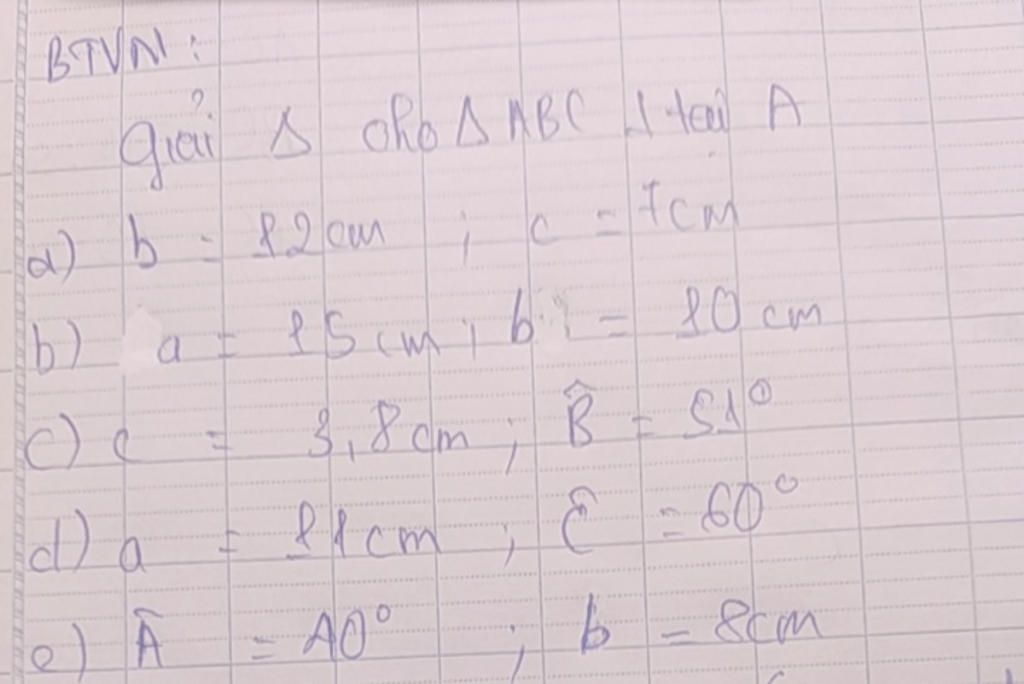 BTVN:
Giải Δ cho Δ ABC ⊥ tại A
a) b = 12 cm ; c = 7cm
b) a = 15 cm ; b = 10 cm
c) c = 3,8 cm ; B̂ = 51°
d) a = 11 cm ; Ĉ = 60°
e) Â = 40° ; b = 8cm